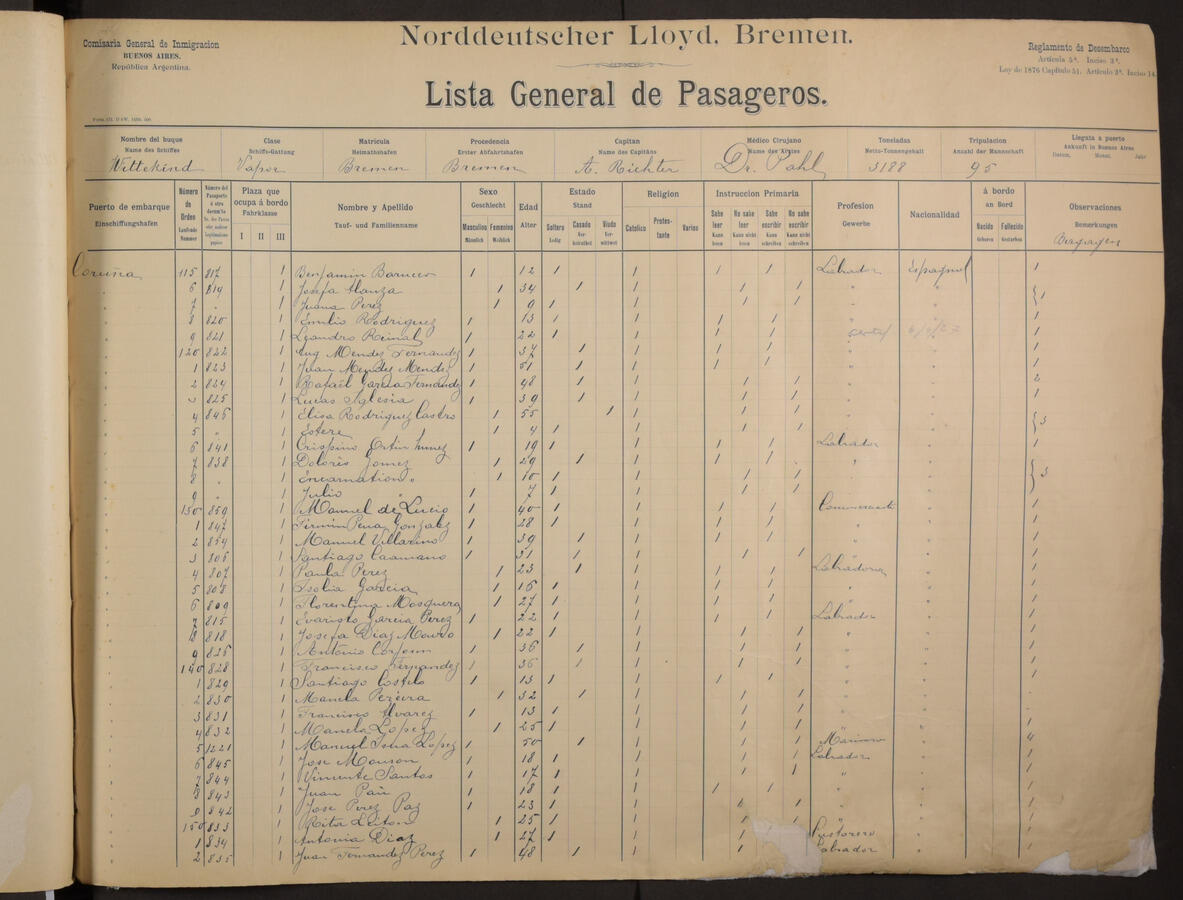 Norddeutscher Lloyd, Bremen.
Comisaria General de Inmigracion
BUENOS AIRES.
República Argentina.
Reglamento de Desembarco
Artícula 5º. Inciso 3º.
Ley de 1876 Capítulo 51. Artículo 2º. Inciso 14.
Lista General de Pasageros.
Nombre del buque Clase Matricula Procedencia Capitan Médico Cirujano Toneladas Tripulacion Llegata a puerto
Name des Schiffes Schiffs-Gattung Heimathshafen Erster Abfahrtshafen Name des Capitäns Name des Arztes Netto-Tonnengehalt Anzahl der Mannschaft Ankunft in Buenos Aires
Datum. Monat. Jahr
Wittekind Vapor Bremen Bremen A. Richter Dr. Pahl 3188 95
Puerto de embarque Número de Orden Plaza que ocupa á bordo Nombre y Apellido Sexo Edad Estado Religion Instruccion Primaria Profesion Nacionalidad á bordo Observaciones
Einschiffungshafen Laufende Nummer Fahrklasse Tauf- und Familienname Geschlecht Alter Stand Gewerbe an Bord Bemerkungen
I II III Masculino Femenino Soltero Casado Viudo Catolico Protestante Varios Sabe leer No sabe leer Sabe escribir No sabe escribir Nacido Fallecido
Männlich Weiblich Ledig Verheirathet Verwittwet Kann lesen Kann nicht lesen Kann schreiben Kann nicht schreiben Geboren Gestorben
Coruña 115 817 1 Benjamin 1 12 1 1 1 1 Labrador Espagnol 1
" 6 819 1 Josefa 1 34 1 1 1 1 " "
" 7 " 1 Juana Perez 1 9 1 1 1 1 " " 1
" 8 820 1 Emilio Rodriguez 1 13 1 1 1 1 " " 1
" 9 821 1 Leandro 1 22 1 1 1 1 " 1
" 120 822 1 Aug Mendez Fernandez 1 37 1 1 1 1 " " 1
" 1 823 1 Juan Mendez Mendez 1 51 1 1 1 1 " " 1
" 2 824 1 Rafael Garcia Fernandez 1 48 1 1 1 1 " " 2
" 3 825 1 Lucas Iglesia 1 39 1 1 1 1 " " 1
" 4 846 1 Elisa Rodriguez Castro 1 55 1 1 1 1 " "
" 5 " 1 Estere 1 4 1 1 1 1 " 3
" 6 841 1 Crispino 1 19 1 1 1 1 Labrador " 1
" 7 838 1 Dolores Gomez 1 29 1 1 1 1 " "
" 8 " 1 Encarnation " 1 10 1 1 1 1 " 3
" 9 " 1 Julio " 1 7 1 1 1 1 "
" 130 859 1 Manuel de Lucio 1 40 1 1 1 1 Commerciante " 1
" 1 847 1 Firmin Pena Gonzalez 1 28 1 1 1 1 " " 1
" 2 854 1 Manuel Villarino 1 39 1 1 1 1 " " 1
" 3 806 1 Santiago Caamano 1 31 1 1 1 1 " " 1
" 4 807 1 Paula Perez 1 23 1 1 1 1 Labradora " 1
" 5 808 1 Garcia 1 16 1 1 1 1 " " 1
" 6 809 1 Florentina Mosquera 1 27 1 1 1 1 " " 1
" 7 815 1 Evaristo Garcia Perez 1 22 1 1 1 1 Labrador " 1
" 8 818 1 Josefa Diaz Mouro 1 22 1 1 1 1 " " 1
" 9 826 1 Antonio 1 36 1 1 1 1 " " 1
" 140 828 1 Francisco Fernandez 1 36 1 1 1 1 " " 1
" 1 829 1 Santiago Costelo 1 13 1 1 1 1 " " 1
" 2 830 1 Manela Pereira 1 32 1 1 1 1 " "
" 3 831 1 Francisco Alvarez 1 13 1 1 1 1 " " 1
" 4 832 1 Manela Lopez 1 25 1 1 1 1 " " 1
" 5 1221 1 Manuel Lopez 1 50 1 1 1 1 Marinero " 4
" 6 845 1 Jose 1 18 1 1 1 1 Labrador " 1
" 7 844 1 Vimente Santos 1 17 1 1 1 1 " " 1
" 8 843 1 Juan 1 18 1 1 1 1 " " 1
" 9 842 1 Jose Perez Paz 1 23 1 1 1 1 " 1
" 150 833 1 Rita 1 25 1 1 1 1 " 1
" 1 834 1 Antonia Diaz 1 27 1 1 1 1 " 1
" 2 835 1 Juan Fernandez Perez 1 48 1 1 1 1 Labrador " 1